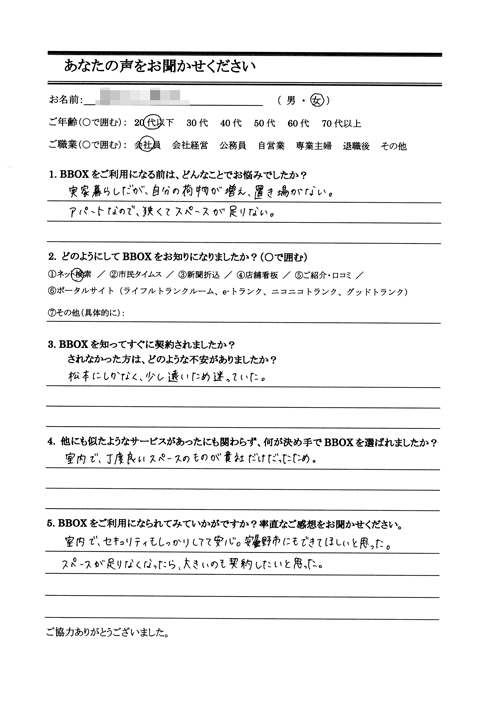 あなたの声をお聞かせください
お名前: （ 男 ・ 女 ）
ご年齢(〇で囲む): 20代以下 30代 40代 50代 60代 70代以上
ご職業(〇で囲む): 会社員 会社経営 公務員 自営業 専業主婦 退職後 その他
1. BBOXをご利用になる前は、どんなことでお悩みでしたか？
実家暮らしだが、自分の荷物が増え、置き場がない。
アパートなので、狭くてスペースが足りない。
2. どのようにしてBBOXをお知りになりましたか？(〇で囲む)
①ネット検索 ／ ②市民タイムス ／ ③新聞折込 ／ ④店舗看板 ／ ⑤ご紹介・口コミ ／
⑥ポータルサイト（ライフルトランクルーム、e-トランク、ニコニコトランク、グッドトランク）
⑦その他(具体的に):
3. BBOXを知ってすぐに契約されましたか？
されなかった方は、どのような不安がありましたか？
松本にしかなく、少し遠いため迷っていた。
4. 他にも似たようなサービスがあったにも関わらず、何が決め手でBBOXを選ばれましたか？
室内で、丁度良いスペースのものが貴社だけだったため。
5. BBOXをご利用になられてみていかがですか？率直なご感想をお聞かせください。
室内で、セキュリティもしっかりしてて安心。安曇野市にもできてほしいと思った。
スペースが足りなくなったら、大きいのも契約したいと思った。
ご協力ありがとうございました。